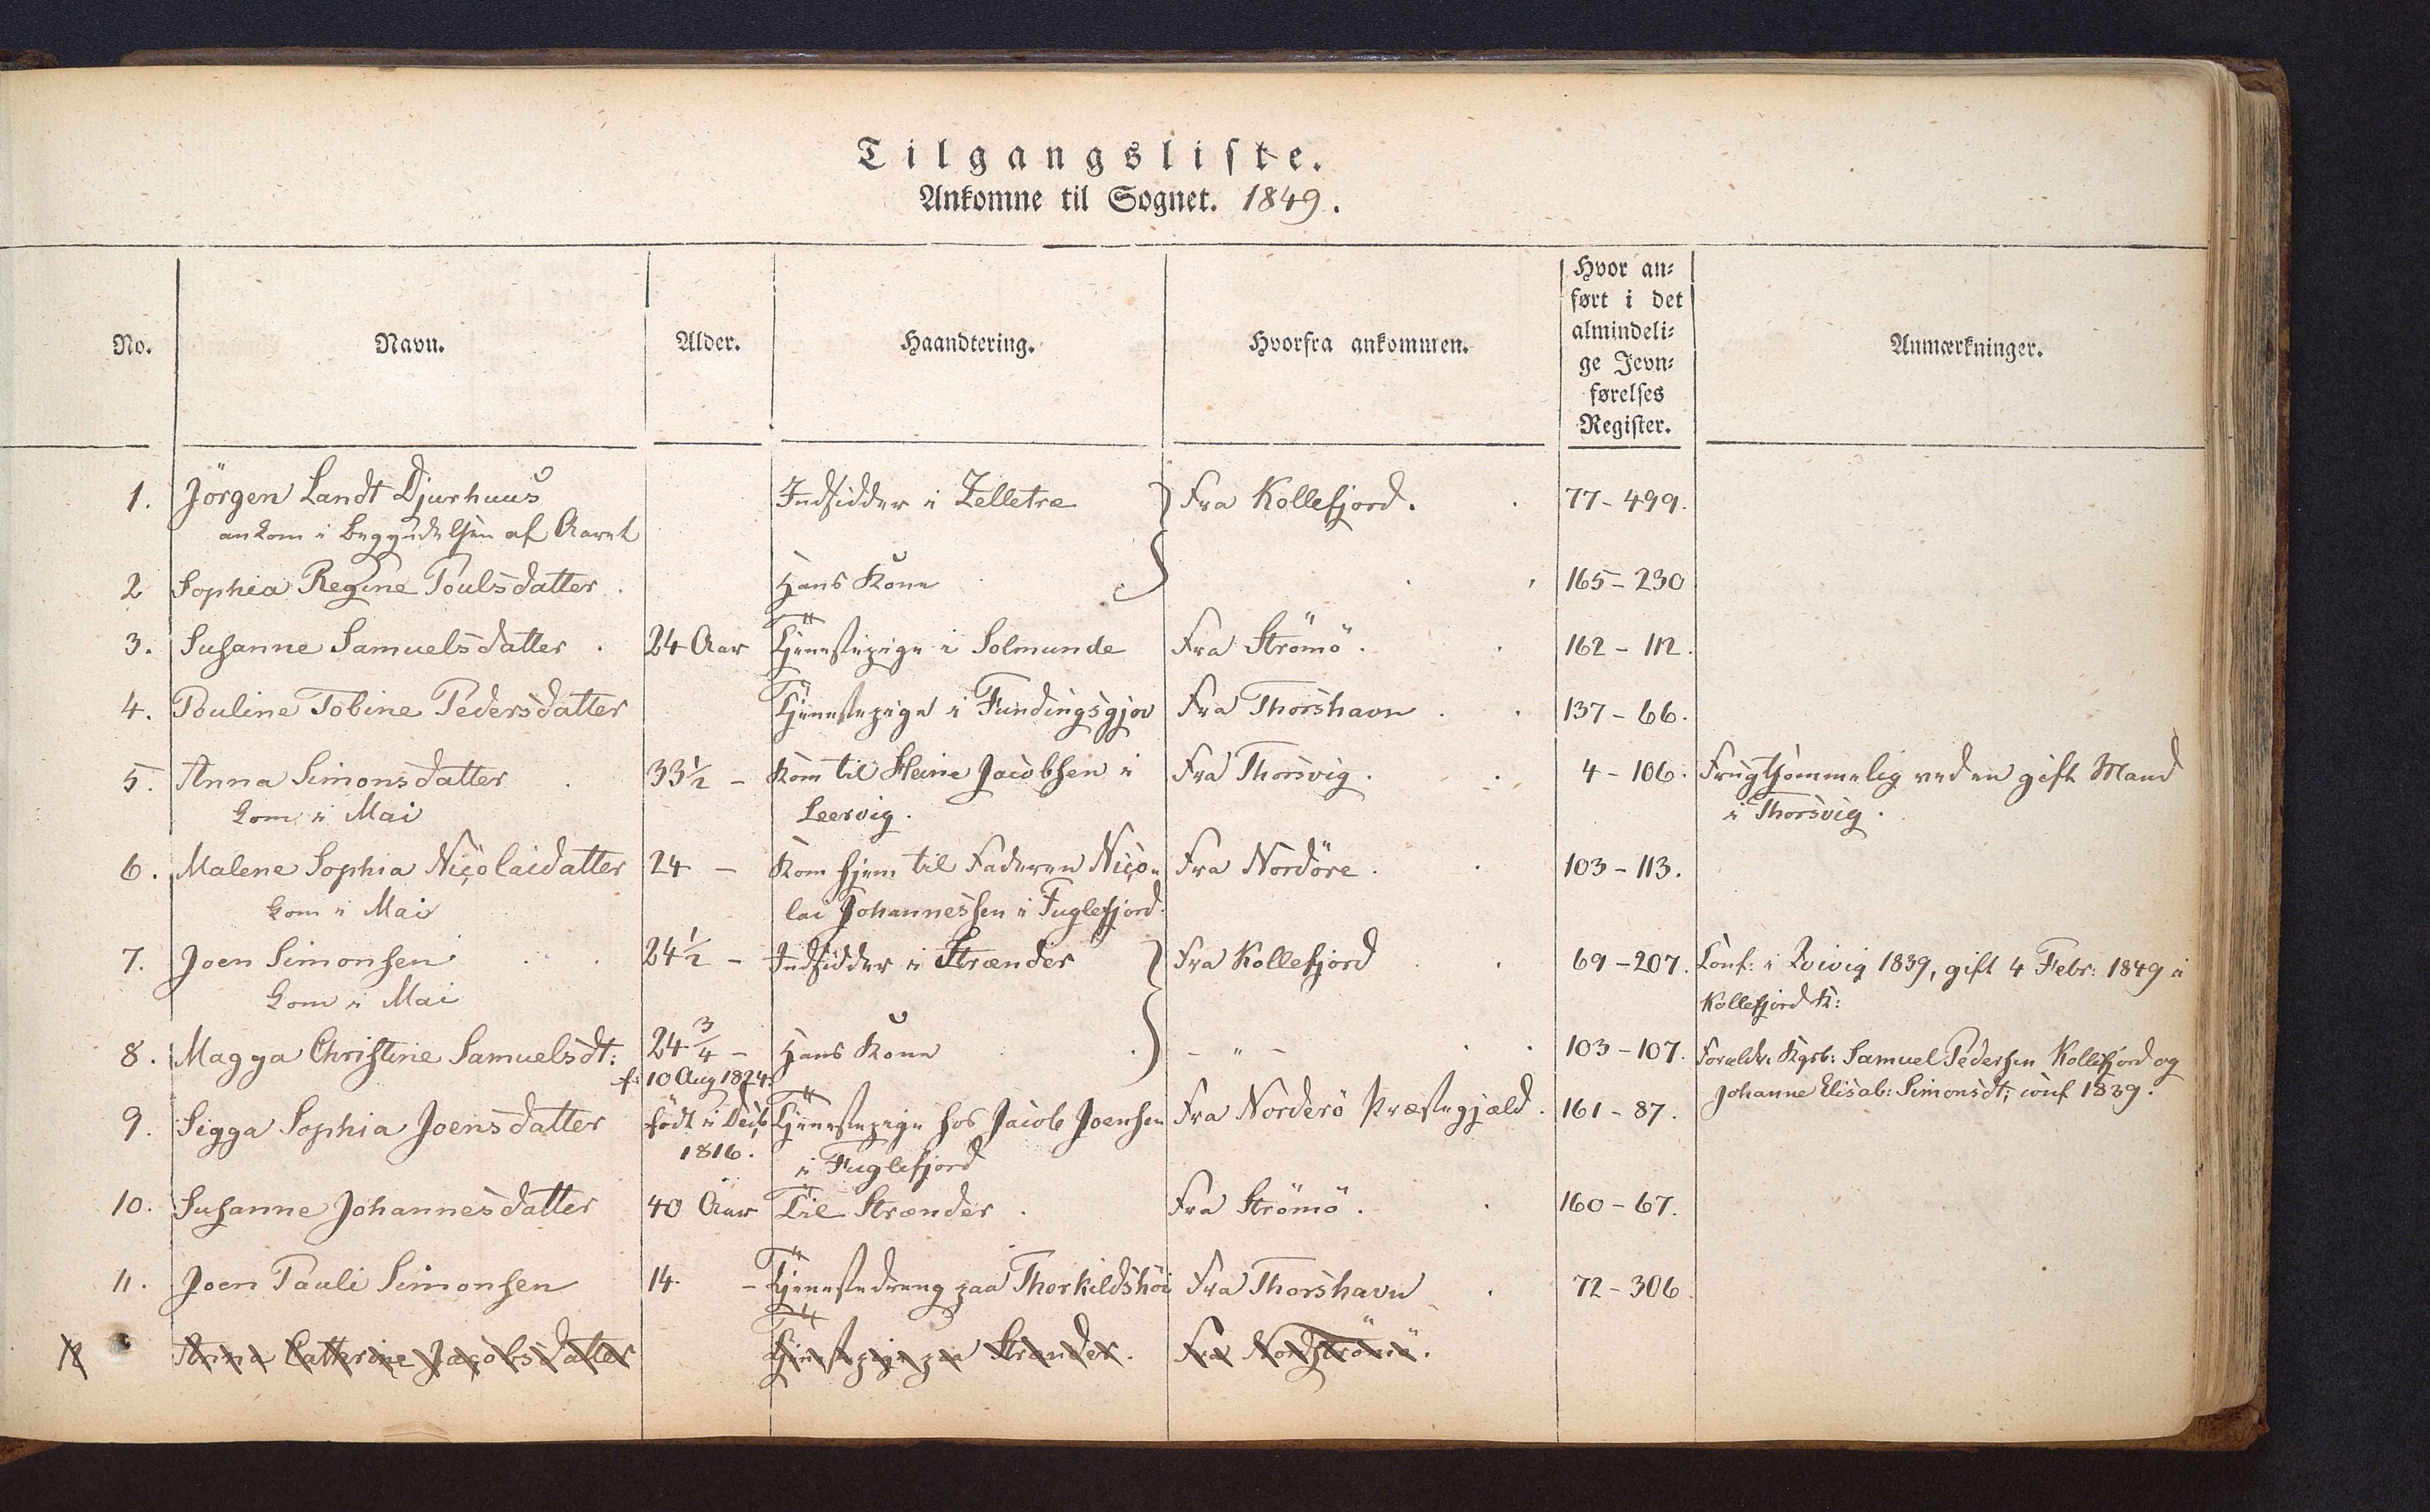 Tilgangsliste.
Ankomne til Sognet. 1849.
No. Navn. Alder. Haandtering. Hvorfra ankommen. Hvor an= ført i det almindeli= ge Jevn= førelses Register. Anmærkninger.
1. Jörgen Landt Djurhuus Indsidder i Zelletræ Fra Kollefjord. 77-499.
ankom i Begyndelsen af Aaret
2 Sophia Regine Poulsdatter. Hans Kone 165-230
3. Susanne Samuelsdatter. 24 Aar Tjenestepige i Solmunde Fra Strömö. 162-112.
4. Pouline Tobine Pedersdatter Tjenestepige i Fundingsgjov Fra Thorshavn. 137-66.
5. Anna Simonsdatter 33½ - Kom til Heine Jacobsen i Fra Thorsvig. 4-106. Frugtsommelig ved en gift Mand
kom i Mai Leervig. i Thorsvig.
6. Malene Sophia Nicolaidatter 24 - Kom hjem til Faderen Nico= Fra Nordöre. 103-113.
kom i Mai lai Johannessen i Fuglefjord.
7. Joen Simonsen 24½ - Indsidder i Strænder Fra Kollefjord 69-207. Conf: i Qvivig 1839, gift 4 Febr: 1849 i
kom i Mai Kollefjord K:
8. Magga Christine Samuelsdt: 24¾ - Hans Kone - " - 103-107. Forældr: Kgsb: Samuel Pedersen Kollefjord og
f: 10 Aug 1824. Johanne Elisab: Simonsdt; conf 1839.
9. Sigga Sophia Joensdatter födt i Decb Tjenestepige hos Jacob Joensen Fra Norderö Præstegjæld. 161-87.
1816. i Fuglefjord
10. Susanne Johannesdatter 40 Aar Til Strænder. Fra Strömö. 160-67.
11. Joen Pauli Simonsen 14 - Tjenestedreng paa Thorkildshöi Fra Thorshavn 72-306.
12 Anna Catherine Jacobsdatter Tjenestepige paa Strander. Fra Nordströmö.